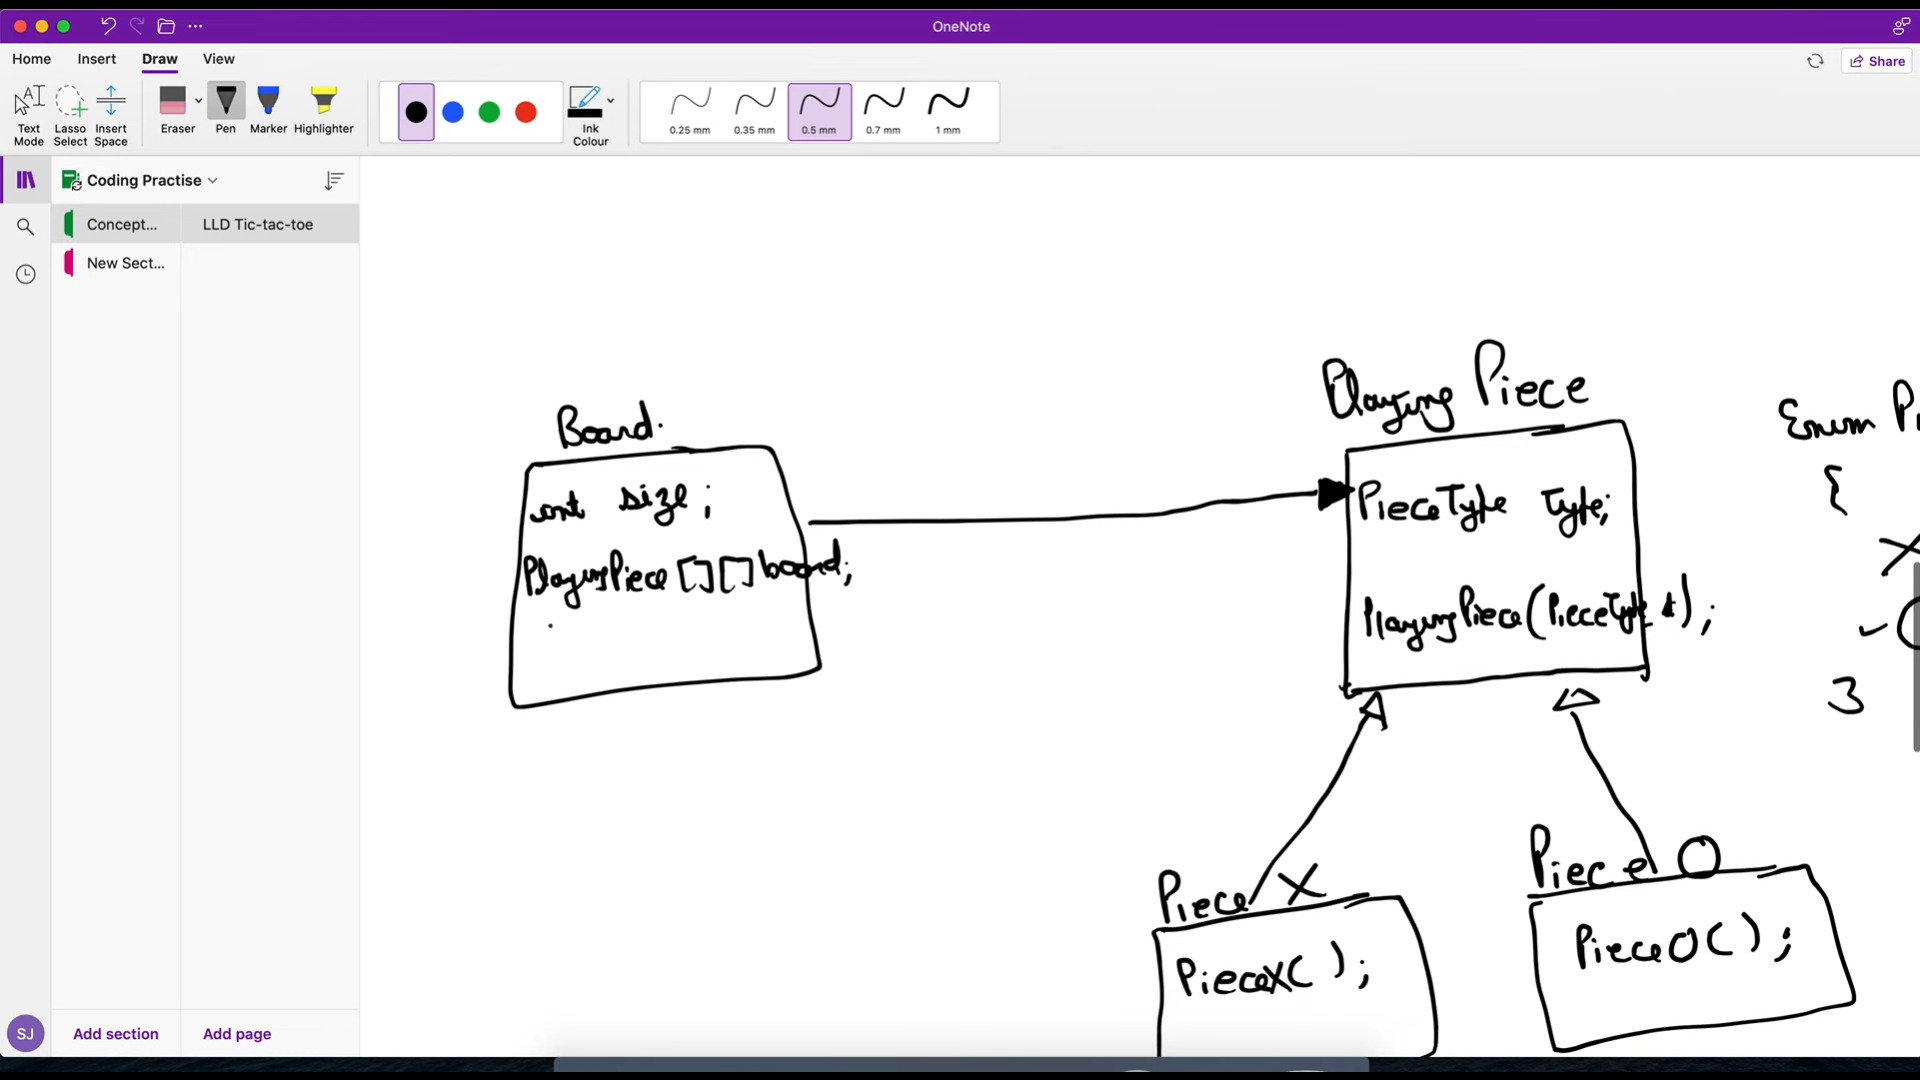 OneNote
Home Insert Draw View
Share
Text Mode
Lasso Select
Insert Space
Eraser
Pen
Marker
Highlighter
Ink Colour
0.25 mm
0.35 mm
0.5 mm
0.7 mm
1 mm
Coding Practise
Concept...
LLD Tic-tac-toe
New Sect...
Board.
int size;
PlayingPiece [][] board;
Playing Piece
PieceType type;
PlayingPiece(PieceType t);
Enum P
{
X
O
}
Piece X
PieceX();
Piece O
PieceO();
SJ
Add section
Add page